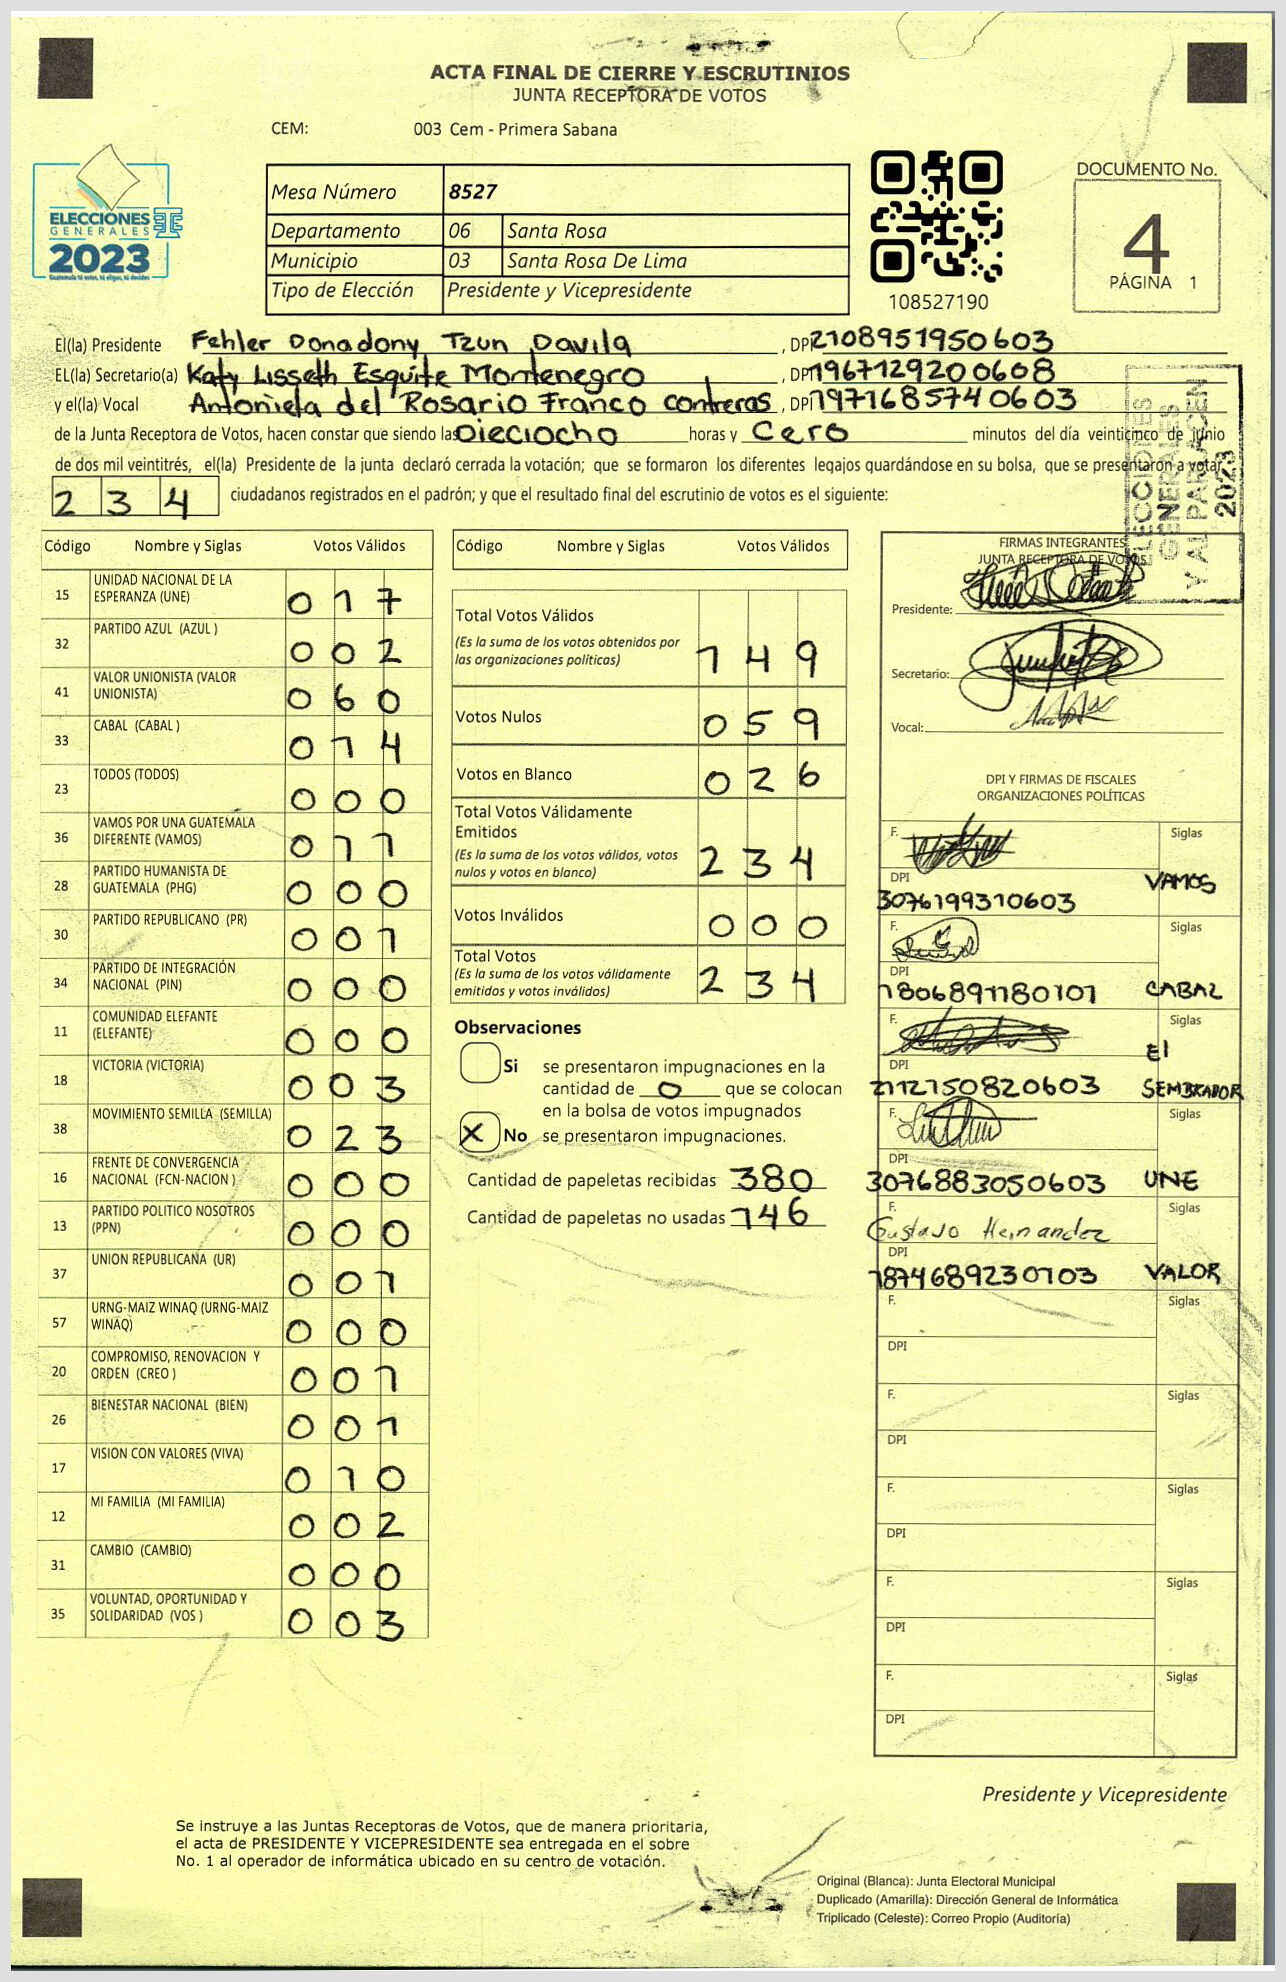 ACTA FINAL DE CIERRE Y ESCRUTINIOS
JUNTA RECEPTORA DE VOTOS
CEM: 003 Cem - Primera Sabana
ELECCIONES
GENERALES
2023
Mesa Número 8527
Departamento 06 Santa Rosa
Municipio 03 Santa Rosa De Lima
Tipo de Elección Presidente y Vicepresidente
108527190
DOCUMENTO No.
4
PÁGINA 1
El(la) Presidente Fehler Donadony Tzun Davila, DPI 2108951950603
EL(la) Secretario(a) Katy Lisseth Esquite Montenegro, DPI 1967129200608
y el(la) Vocal Antonieta del Rosario Franco Contreras, DPI 1971685740603
de la Junta Receptora de Votos, hacen constar que siendo las Dieciocho horas y Cero minutos del día veinticinco de junio
de dos mil veintitrés, el(la) Presidente de la junta declaró cerrada la votación; que se formaron los diferentes legajos guardándose en su bolsa, que se presentaron a votar
2 3 4 ciudadanos registrados en el padrón; y que el resultado final del escrutinio de votos es el siguiente:
ELECCIONES
GENERALES
Y AL PARLACEN
2023
Código Nombre y Siglas Votos Válidos
15 UNIDAD NACIONAL DE LA
ESPERANZA (UNE) 0 1 7
32 PARTIDO AZUL (AZUL ) 0 0 2
41 VALOR UNIONISTA (VALOR
UNIONISTA) 0 6 0
33 CABAL (CABAL ) 0 1 4
23 TODOS (TODOS) 0 0 0
36 VAMOS POR UNA GUATEMALA
DIFERENTE (VAMOS) 0 1 1
28 PARTIDO HUMANISTA DE
GUATEMALA (PHG) 0 0 0
30 PARTIDO REPUBLICANO (PR) 0 0 1
34 PARTIDO DE INTEGRACIÓN
NACIONAL (PIN) 0 0 0
11 COMUNIDAD ELEFANTE
(ELEFANTE) 0 0 0
18 VICTORIA (VICTORIA) 0 0 3
38 MOVIMIENTO SEMILLA (SEMILLA) 0 2 3
16 FRENTE DE CONVERGENCIA
NACIONAL (FCN-NACION ) 0 0 0
13 PARTIDO POLITICO NOSOTROS
(PPN) 0 0 0
37 UNION REPUBLICANA (UR) 0 0 1
57 URNG-MAIZ WINAQ (URNG-MAIZ
WINAQ) 0 0 0
20 COMPROMISO, RENOVACION Y
ORDEN (CREO ) 0 0 1
26 BIENESTAR NACIONAL (BIEN) 0 0 1
17 VISION CON VALORES (VIVA) 0 1 0
12 MI FAMILIA (MI FAMILIA) 0 0 2
31 CAMBIO (CAMBIO) 0 0 0
35 VOLUNTAD, OPORTUNIDAD Y
SOLIDARIDAD (VOS ) 0 0 3
Código Nombre y Siglas Votos Válidos
Total Votos Válidos
(Es la suma de los votos obtenidos por
las organizaciones políticas) 1 4 9
Votos Nulos 0 5 9
Votos en Blanco 0 2 6
Total Votos Válidamente
Emitidos
(Es la suma de los votos válidos, votos
nulos y votos en blanco) 2 3 4
Votos Inválidos 0 0 0
Total Votos
(Es la suma de los votos válidamente
emitidos y votos inválidos) 2 3 4
Observaciones
Si se presentaron impugnaciones en la
cantidad de 0 que se colocan
en la bolsa de votos impugnados
X No se presentaron impugnaciones.
Cantidad de papeletas recibidas 380
Cantidad de papeletas no usadas 146
FIRMAS INTEGRANTES
JUNTA RECEPTORA DE VOTOS
Presidente:
Secretario:
Vocal:
DPI Y FIRMAS DE FISCALES
ORGANIZACIONES POLÍTICAS
F. Siglas
DPI VAMOS
3076199310603
F. Siglas
DPI
1806891180101 CABAL
F. Siglas
DPI El
2112150820603 SEMBRADOR
F. Siglas
DPI
3076883050603 UNE
F. Siglas
Gustavo Hernandez
DPI
1874689230103 VALOR
F. Siglas
DPI
F. Siglas
DPI
F. Siglas
DPI
F. Siglas
DPI
F. Siglas
DPI
Presidente y Vicepresidente
Se instruye a las Juntas Receptoras de Votos, que de manera prioritaria,
el acta de PRESIDENTE Y VICEPRESIDENTE sea entregada en el sobre
No. 1 al operador de informática ubicado en su centro de votación.
Original (Blanca): Junta Electoral Municipal
Duplicado (Amarilla): Dirección General de Informática
Triplicado (Celeste): Correo Propio (Auditoría)